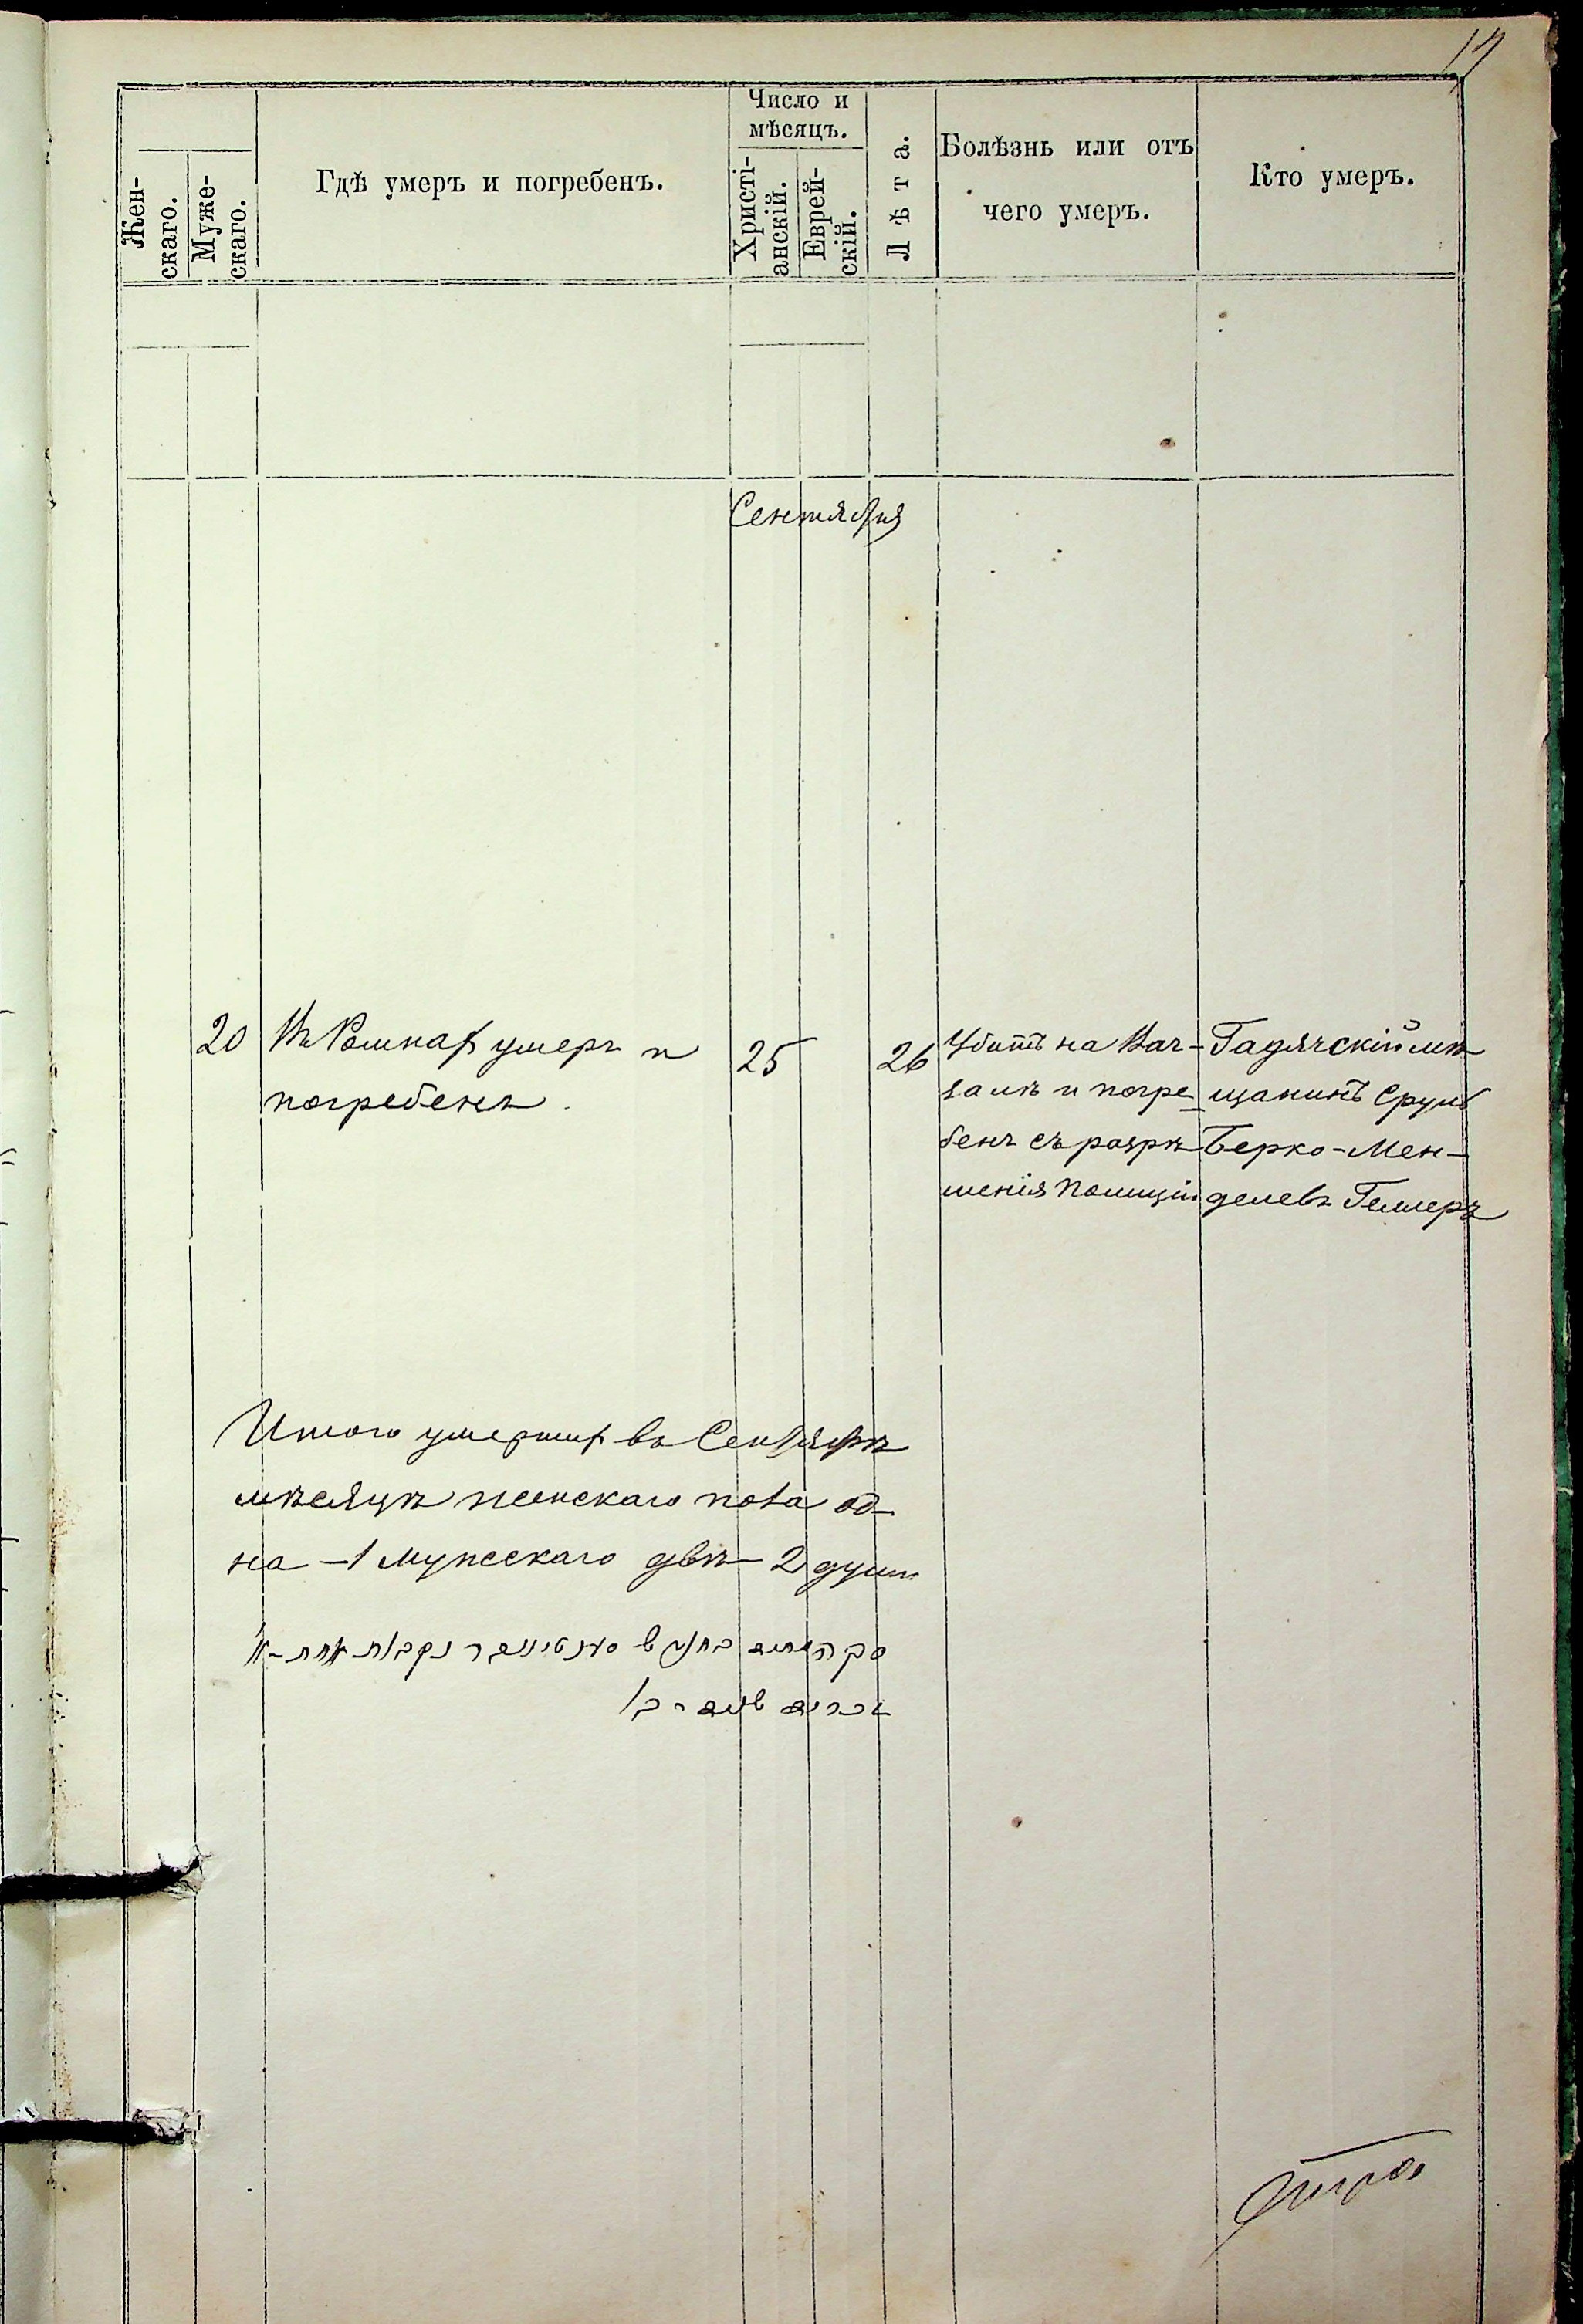 17
Жен-
скаго.
Муже-
скаго.
Гдѣ умеръ и погребенъ.
Число и
мѣсяцъ.
Христі-
анскій.
Еврей-
скій.
Лѣта.
Болѣзнь или отъ
чего умеръ.
Кто умеръ.
Сентября
20
Въ Ромнах умеръ и
погребенъ.
25
26
Убитъ на Вак-
залѣ и погре-
бенъ съ разрѣ-
шенія Полиціи
Гадячскій мѣ
щанинъ Сруль
Берко-Мен-
делевъ Геллеръ
Итого умерших въ Сентябрѣ
мѣсяцѣ женскаго пола од-
на – 1 мужескаго двѣ – 2 души